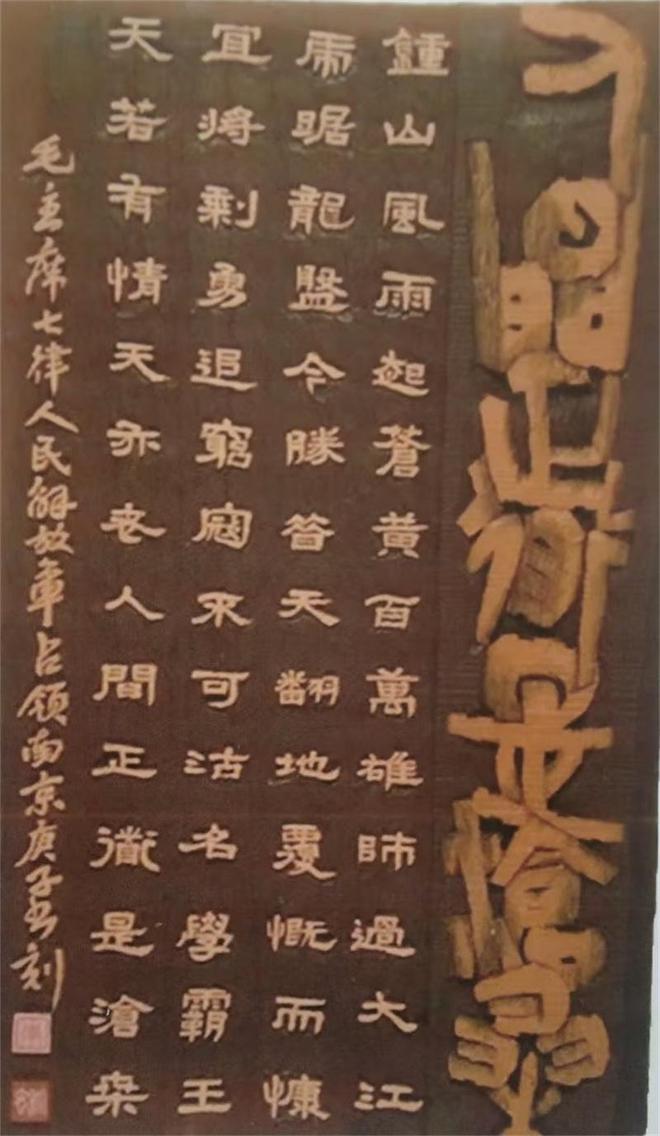 人間正道是滄桑
鍾山風雨起蒼黃百萬雄師過大江
虎踞龍盤今勝昔天翻地覆慨而慷
宜將剩勇追窮寇不可沽名學霸王
天若有情天亦老人間正道是滄桑
毛主席七律人民解放軍占領南京庚子书刻